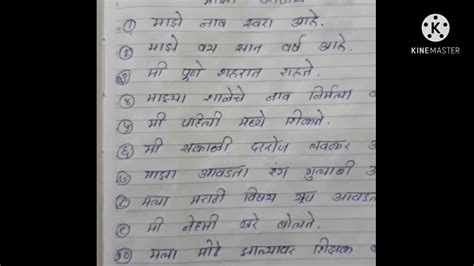 ① माझे नाव स्वरा आहे.
② माझे वय सात वर्ष आहे.
③ मी पुणे शहरात राहते.
④ माझ्या शाळेचे नाव निर्मला
⑤ मी पहिली मध्ये शिकते.
⑥ मी सकाळी दररोज लवकर
⑦ माझा आवडता रंग गुलाबी
⑧ मला मराठी विषय खूप आवडत
⑨ मी नेहमी खरे बोलते.
⑩ मला मोठे झाल्यावर शिक्षक
KINEMASTER